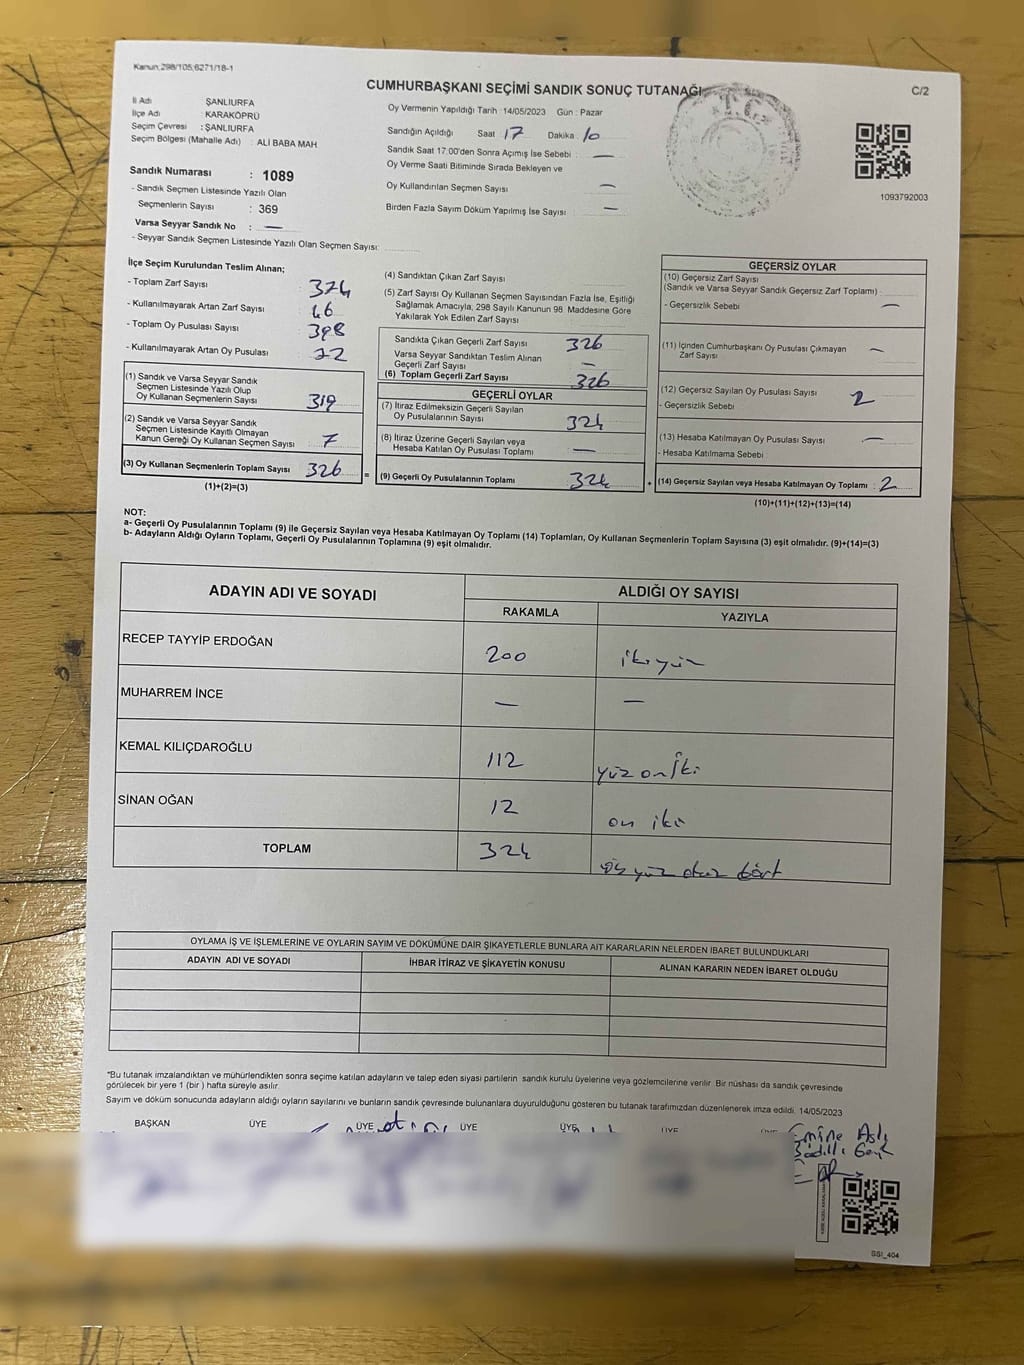 Kanun;298/105;6271/18-1
CUMHURBAŞKANI SEÇİMİ SANDIK SONUÇ TUTANAĞI
C/2
İl Adı ŞANLIURFA
İlçe Adı KARAKÖPRÜ
Seçim Çevresi : ŞANLIURFA
Seçim Bölgesi (Mahalle Adı) : ALİ BABA MAH
Sandık Numarası : 1089
- Sandık Seçmen Listesinde Yazılı Olan
Seçmenlerin Sayısı : 369
Varsa Seyyar Sandık No : —
- Seyyar Sandık Seçmen Listesinde Yazılı Olan Seçmen Sayısı:
Oy Vermenin Yapıldığı Tarih : 14/05/2023 Gün : Pazar
Sandığın Açıldığı Saat : 17 Dakika : 10
Sandık Saat 17:00'den Sonra Açımış İse Sebebi : —
Oy Verme Saati Bitiminde Sırada Bekleyen ve
Oy Kullandırılan Seçmen Sayısı : —
Birden Fazla Sayım Döküm Yapılmış İse Sayısı : —
T.C.
1093792003
İlçe Seçim Kurulundan Teslim Alınan;
- Toplam Zarf Sayısı : 374
- Kullanılmayarak Artan Zarf Sayısı : 46
- Toplam Oy Pusulası Sayısı : 398
- Kullanılmayarak Artan Oy Pusulası : 72
(1) Sandık ve Varsa Seyyar Sandık
Seçmen Listesinde Yazılı Olup
Oy Kullanan Seçmenlerin Sayısı : 319
(2) Sandık ve Varsa Seyyar Sandık
Seçmen Listesinde Kayıtlı Olmayan
Kanun Gereği Oy Kullanan Seçmen Sayısı : 7
(3) Oy Kullanan Seçmenlerin Toplam Sayısı : 326
(1)+(2)=(3)
(4) Sandıktan Çıkan Zarf Sayısı
(5) Zarf Sayısı Oy Kullanan Seçmen Sayısından Fazla İse, Eşitliği
Sağlamak Amacıyla, 298 Sayılı Kanunun 98. Maddesine Göre
Yakılarak Yok Edilen Zarf Sayısı
Sandıkta Çıkan Geçerli Zarf Sayısı : 326
Varsa Seyyar Sandıktan Teslim Alınan
Geçerli Zarf Sayısı : —
(6) Toplam Geçerli Zarf Sayısı : 326
GEÇERLİ OYLAR
(7) İtiraz Edilmeksizin Geçerli Sayılan
Oy Pusulalarının Sayısı : 324
(8) İtiraz Üzerine Geçerli Sayılan veya
Hesaba Katılan Oy Pusulası Toplamı : —
(9) Geçerli Oy Pusulalarının Toplamı : 324
GEÇERSİZ OYLAR
(10) Geçersiz Zarf Sayısı
(Sandık ve Varsa Seyyar Sandık Geçersiz Zarf Toplamı)
- Geçersizlik Sebebi : —
(11) İçinden Cumhurbaşkanı Oy Pusulası Çıkmayan
Zarf Sayısı : —
(12) Geçersiz Sayılan Oy Pusulası Sayısı : 2
- Geçersizlik Sebebi
(13) Hesaba Katılmayan Oy Pusulası Sayısı : —
- Hesaba Katılmama Sebebi
(14) Geçersiz Sayılan veya Hesaba Katılmayan Oy Toplamı : 2
(10)+(11)+(12)+(13)=(14)
NOT:
a- Geçerli Oy Pusulalarının Toplamı (9) ile Geçersiz Sayılan veya Hesaba Katılmayan Oy Toplamı (14) Toplamları, Oy Kullanan Seçmenlerin Toplam Sayısına (3) eşit olmalıdır. (9)+(14)=(3)
b- Adayların Aldığı Oyların Toplamı, Geçerli Oy Pusulalarının Toplamına (9) eşit olmalıdır.
ADAYIN ADI VE SOYADI ALDIĞI OY SAYISI
RAKAMLA YAZIYLA
RECEP TAYYİP ERDOĞAN 200 ikiyüz
MUHARREM İNCE — —
KEMAL KILIÇDAROĞLU 112 yüz on iki
SİNAN OĞAN 12 on iki
TOPLAM 324 üç yüz dört
OYLAMA İŞ VE İŞLEMLERİNE VE OYLARIN SAYIM VE DÖKÜMÜNE DAİR ŞİKAYETLERLE BUNLARA AİT KARARLARIN NELERDEN İBARET BULUNDUKLARI
ADAYIN ADI VE SOYADI İHBAR İTİRAZ VE ŞİKAYETİN KONUSU ALINAN KARARIN NEDEN İBARET OLDUĞU
*Bu tutanak imzalandıktan ve mühürlendikten sonra seçime katılan adayların ve talep eden siyasi partilerin sandık kurulu üyelerine veya gözlemcilerine verilir. Bir nüshası da sandık çevresinde
görülecek bir yere 1 (bir ) hafta süreyle asılır.
Sayım ve döküm sonucunda adayların aldığı oyların sayılarını ve bunların sandık çevresinde bulunanlara duyurulduğunu gösteren bu tutanak tarafımızdan düzenlenerek imza edildi. 14/05/2023
BAŞKAN ÜYE ÜYE ÜYE ÜYE ÜYE
Emine Aslı
SSI_404